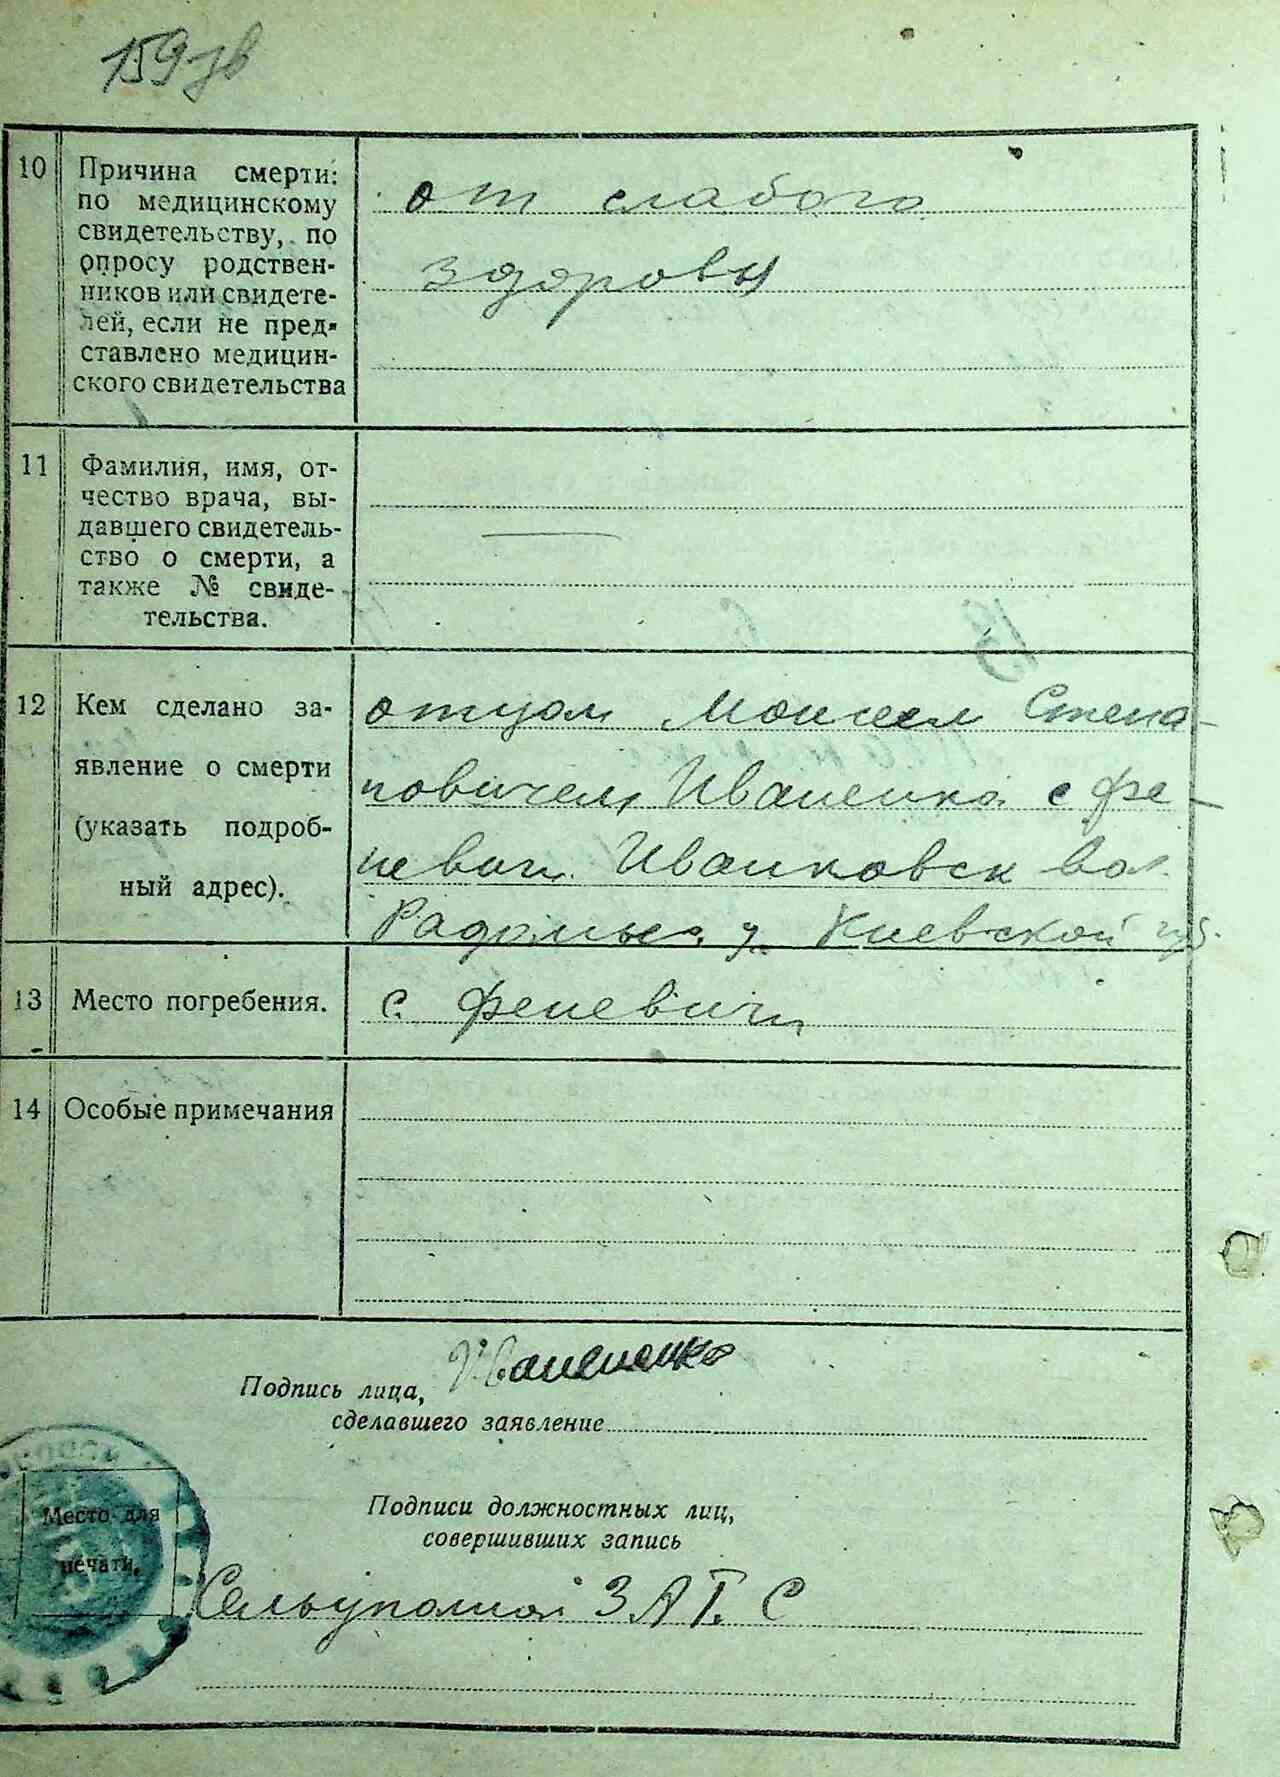 159 зв
10 Причина смерти:
по медицинскому
свидетельству, по
опросу родствен-
ников или свидете-
лей, если не пред-
ставлено медицин-
ского свидетельства
от слабого
здоровья
11 Фамилия, имя, от-
чество врача, вы-
давшего свидетель-
ство о смерти, а
также № свиде-
тельства.
12 Кем сделано за-
явление о смерти
(указать подроб-
ный адрес).
отцом Моисеем Степа-
новичем Иваненко с Фе-
невич. Иванковск вол.
Радомысс. у. Киевской губ.
13 Место погребения.
с. Феневичи
14 Особые примечания
Иваненко
Подпись лица,
сделавшего заявление
Место для
печати.
Подписи должностных лиц,
совершивших запись
ЗАГС